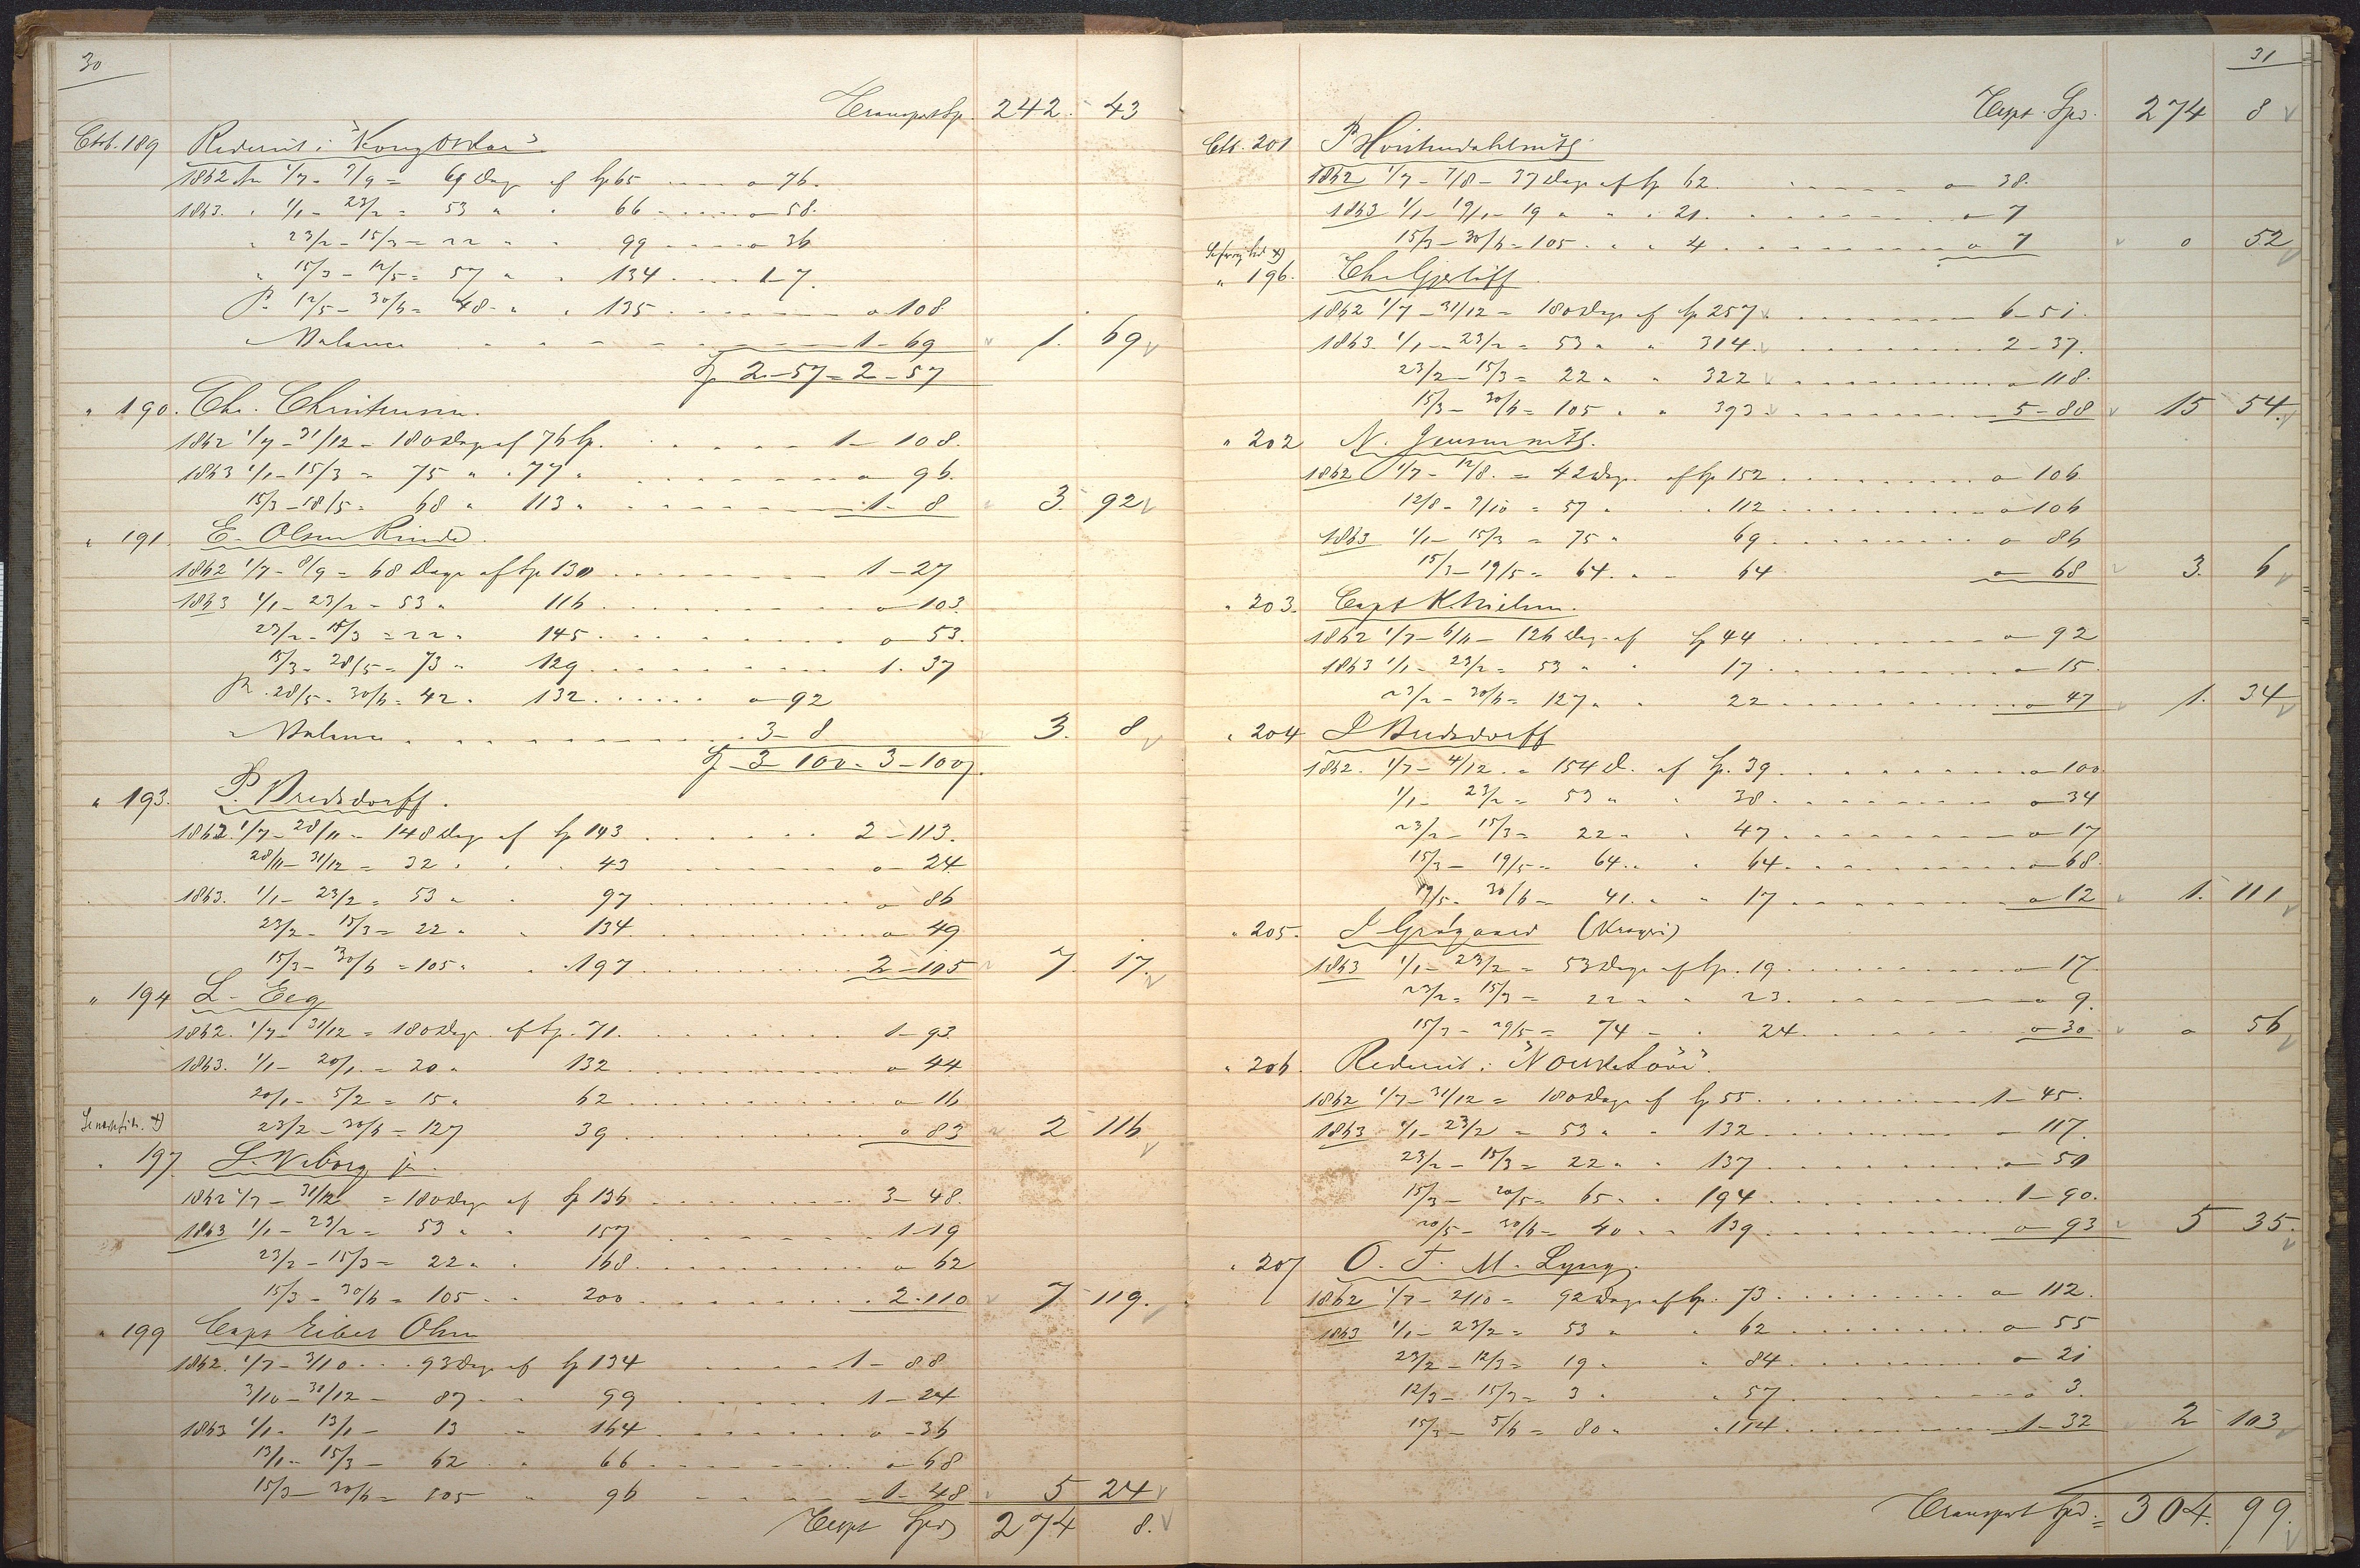 30
Transport Sp. 242. 43
Ctb. 189 Rederiet i "Kong Oskar"
1862 1/7 - 9/9 = 69 Dage af Sp 65 .... o 76.
1863. " 1/1 - 23/2 = 53 " " 66 .... o 58.
" 23/2 - 15/3 = 22 " " 99 .... o 36
" 15/3 - 12/5 = 57 " " 134 .... 1-7.
12/5 - 30/6 = 48 " " 135 .... o 108
Balance .... 1-69 1. 69
Sp 2-57 = 2-57
" 190. Chr. Christensen.
1862 1/7 - 31/12 - 180 Dage af 76 Sp. .... 1-108.
1863 1/1 - 15/3 = 75 " " 77 " .... o 96.
15/3 - 18/5 = 68 " 113 " .... 1-8 3. 92
" 191. E. Olsen Rinde.
1862 1/7 - 8/9 = 68 Dage af Sp 130 .... 1-27
1863 1/1 - 23/2 - 53 " 116 .... o-103.
23/2 - 15/3 = 22 " 145 .... o-53.
15/3 - 28/5 = 73 " 129 .... 1.37
28/5 - 30/6 = 42 " 132 .... o-92
Balance .... 3-8 3. 8
Sp 3-100 = 3-100
" 193. P. Bredsdorff.
1862. 1/7 - 28/11 - 148 Dage af Sp 143 .... 2-113.
28/11 - 31/12 = 32 " " 43 .... o-24
1863. 1/1 - 23/2 = 53 " " 97 .... o 86
23/2 - 15/3 = 22 " " 134 .... o 49
15/3 - 30/6 = 105 " " 197 .... 2-105 7. 17.
" 194 L. Eeg
1862. 1/7 - 31/12 = 180 Dage af Sp. 71. .... 1-93
1863. 1/1 - 20/1 = 20 " 132 .... o 44
20/1 - 5/2 = 15 " 62 .... o 16
23/2 - 30/6 = 127 39 .... o 83 2 116
" 197. S. Viborg jr.
1862 1/7 - 31/12 = 180 Dage af Sp 136 .... 3-48.
1863 1/1 - 23/2 = 53 " " 157 .... 1-19
23/2 - 15/3 = 22 " " 168 .... o 62
15/3 - 30/6 = 105 " " 200 .... 2-110 7 119.
" 199 Capt Eibert Olsen
1862. 1/7 - 3/10 .. 93 Dage af Sp 134 .... 1-88
3/10 - 31/12 - 87 " " 99 .... 1-24
1863 1/1 - 13/1 - 13 " 164 .... o-36
13/1 - 15/3 - 62 " " 66 .... o-68
15/3 - 30/6 = 105 " 96 .... 1-48 5 24
Transpt Spd 274 8.
31
Transpt. Spd. 274 8
Ctb. 201 P
1862 1/7 - 7/8 - 37 Dage af Sp 62. .... o 38.
1863 1/1 - 19/1 - 19 " " " 21. .... o 7
15/3 - 30/6 = 105 " " " 4 .... o 7 o 52
" 196. Chr. Gjerløff.
1862 1/7 - 31/12 = 180 Dage af Sp 257 .... 6-51.
1863. 1/1 - 23/2 = 53 " " 314 .... 2-37.
23/2 - 15/3 = 22 " " 322 .... o 118.
15/3 - 30/6 = 105 " " 393 .... 5-88 15 54.
" 202 N.
1862 1/7 - 12/8. = 42 Dage af Sp 152 .... o 106
12/8 - 9/10 = 57 " " 112 .... o 106
1863 1/1 - 15/3 = 75 " 69 .... o 86
15/3 - 19/5 = 64 " " 64 o 68 3. 6
" 203. Capt K. Nielsen.
1862 1/7 - 6/11 - 126 Dage af Sp 44 .... o 92
1863 1/1 - 23/2 = 53 " " 17 .... o 15.
23/2 - 30/6 = 127 " " 22 .... o 47 1. 34
" 204 S Bredsdorff
1862. 1/7 - 4/12. = 154 D. af Sp. 39 .... o 100
1/1 - 23/2 = 53 " " 38 .... o 34
23/2 - 15/3 = 22 " " 47 .... o 17
15/3 - 19/5 = 64 " " 64 .... o 68.
19/5 - 30/6 = 41 " " 17 .... o 12 1. 111
" 205. (Kragerø)
1863 1/1 - 23/2 = 53 Dage af Sp. 19 .... o 17.
23/2 - 15/3 = 22 " " 23. .... o 9.
15/3 - 29/5 = 74 - " 24 .... o 30 o 56
" 206. Rederiet i "
1862 1/7 - 31/12 = 180 Dage af Sp 55 .... 1-45.
1863 1/1 - 23/2 = 53 " " 132 .... - 117.
23/2 - 15/3 = 22 " " 137 .... o 50
15/3 - 20/5 = 65 " " 194 .... 1-90.
20/5 - 30/6 = 40 " " 139 .... o 93 5 35.
" 207 O. T. M. Lyng.
1862 1/7 - 2/10 = 92 Dage af Sp. 73 .... o 112.
1863 1/1 - 23/2 = 53 " " 62 .... o 55
23/2 - 12/3 = 19 " " 84 .... o 21
12/3 - 15/3 = 3 " " 57 .... o 3.
15/3 - 5/6 = 80 " " 114 .... 1-32 2 103
Transport Spd. = 304. 99.